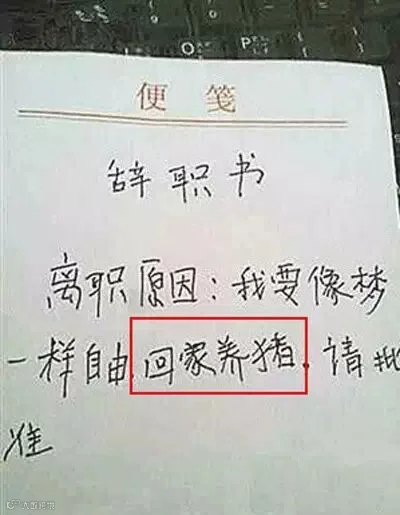 便笺
辞职书
离职原因：我要像梦
一样自由.回家养猪.请批
准